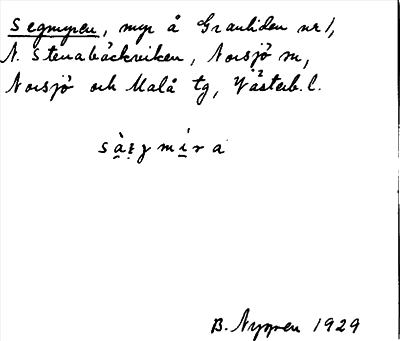 Segmyren, myr å Granliden nr 1,
N. Stenabäckviken, Norsjö sn,
Norsjö och Malå tg, Västerb. l.
B. Nygren 1929